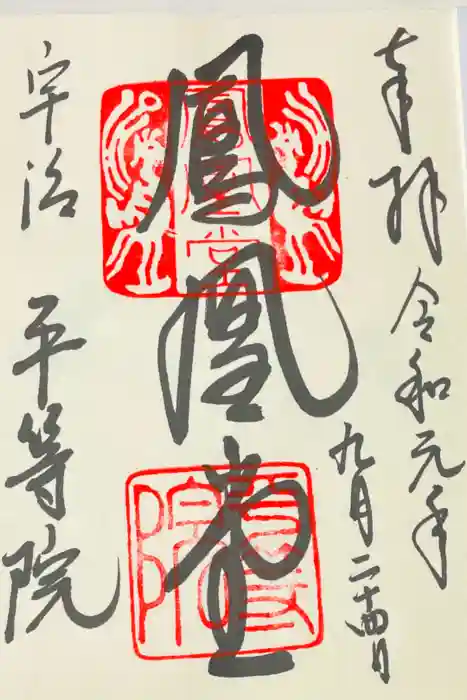 奉拝
令和元年
九月二十四日
鳳凰堂
鳳凰堂
宇治
平等院